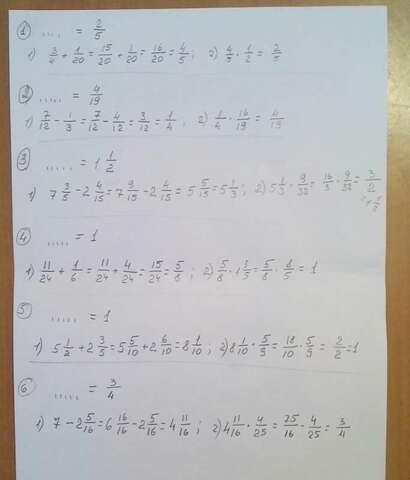 1) ..... = 2/5
1) 3/4 + 1/20 = 15/20 + 1/20 = 16/20 = 4/5; 2) 4/5 · 1/2 = 2/5
2) ..... = 4/19
1) 7/12 - 1/3 = 7/12 - 4/12 = 3/12 = 1/4; 2) 1/4 · 16/19 = 4/19
3) ..... = 1 1/2
1) 7 3/5 - 2 4/15 = 7 9/15 - 2 4/15 = 5 5/15 = 5 1/3; 2) 5 1/3 · 9/32 = 16/3 · 9/32 = 3/2
= 1 1/2
4) ..... = 1
1) 11/24 + 1/6 = 11/24 + 4/24 = 15/24 = 5/8; 2) 5/8 · 1 3/5 = 5/8 · 8/5 = 1
5) ..... = 1
1) 5 1/2 + 2 3/5 = 5 5/10 + 2 6/10 = 8 1/10; 2) 8 1/10 · 5/9 = 18/10 · 5/9 = 2/2 = 1
6) ..... = 3/4
1) 7 - 2 5/16 = 6 16/16 - 2 5/16 = 4 11/16; 2) 4 11/16 · 4/25 = 75/16 · 4/25 = 3/4